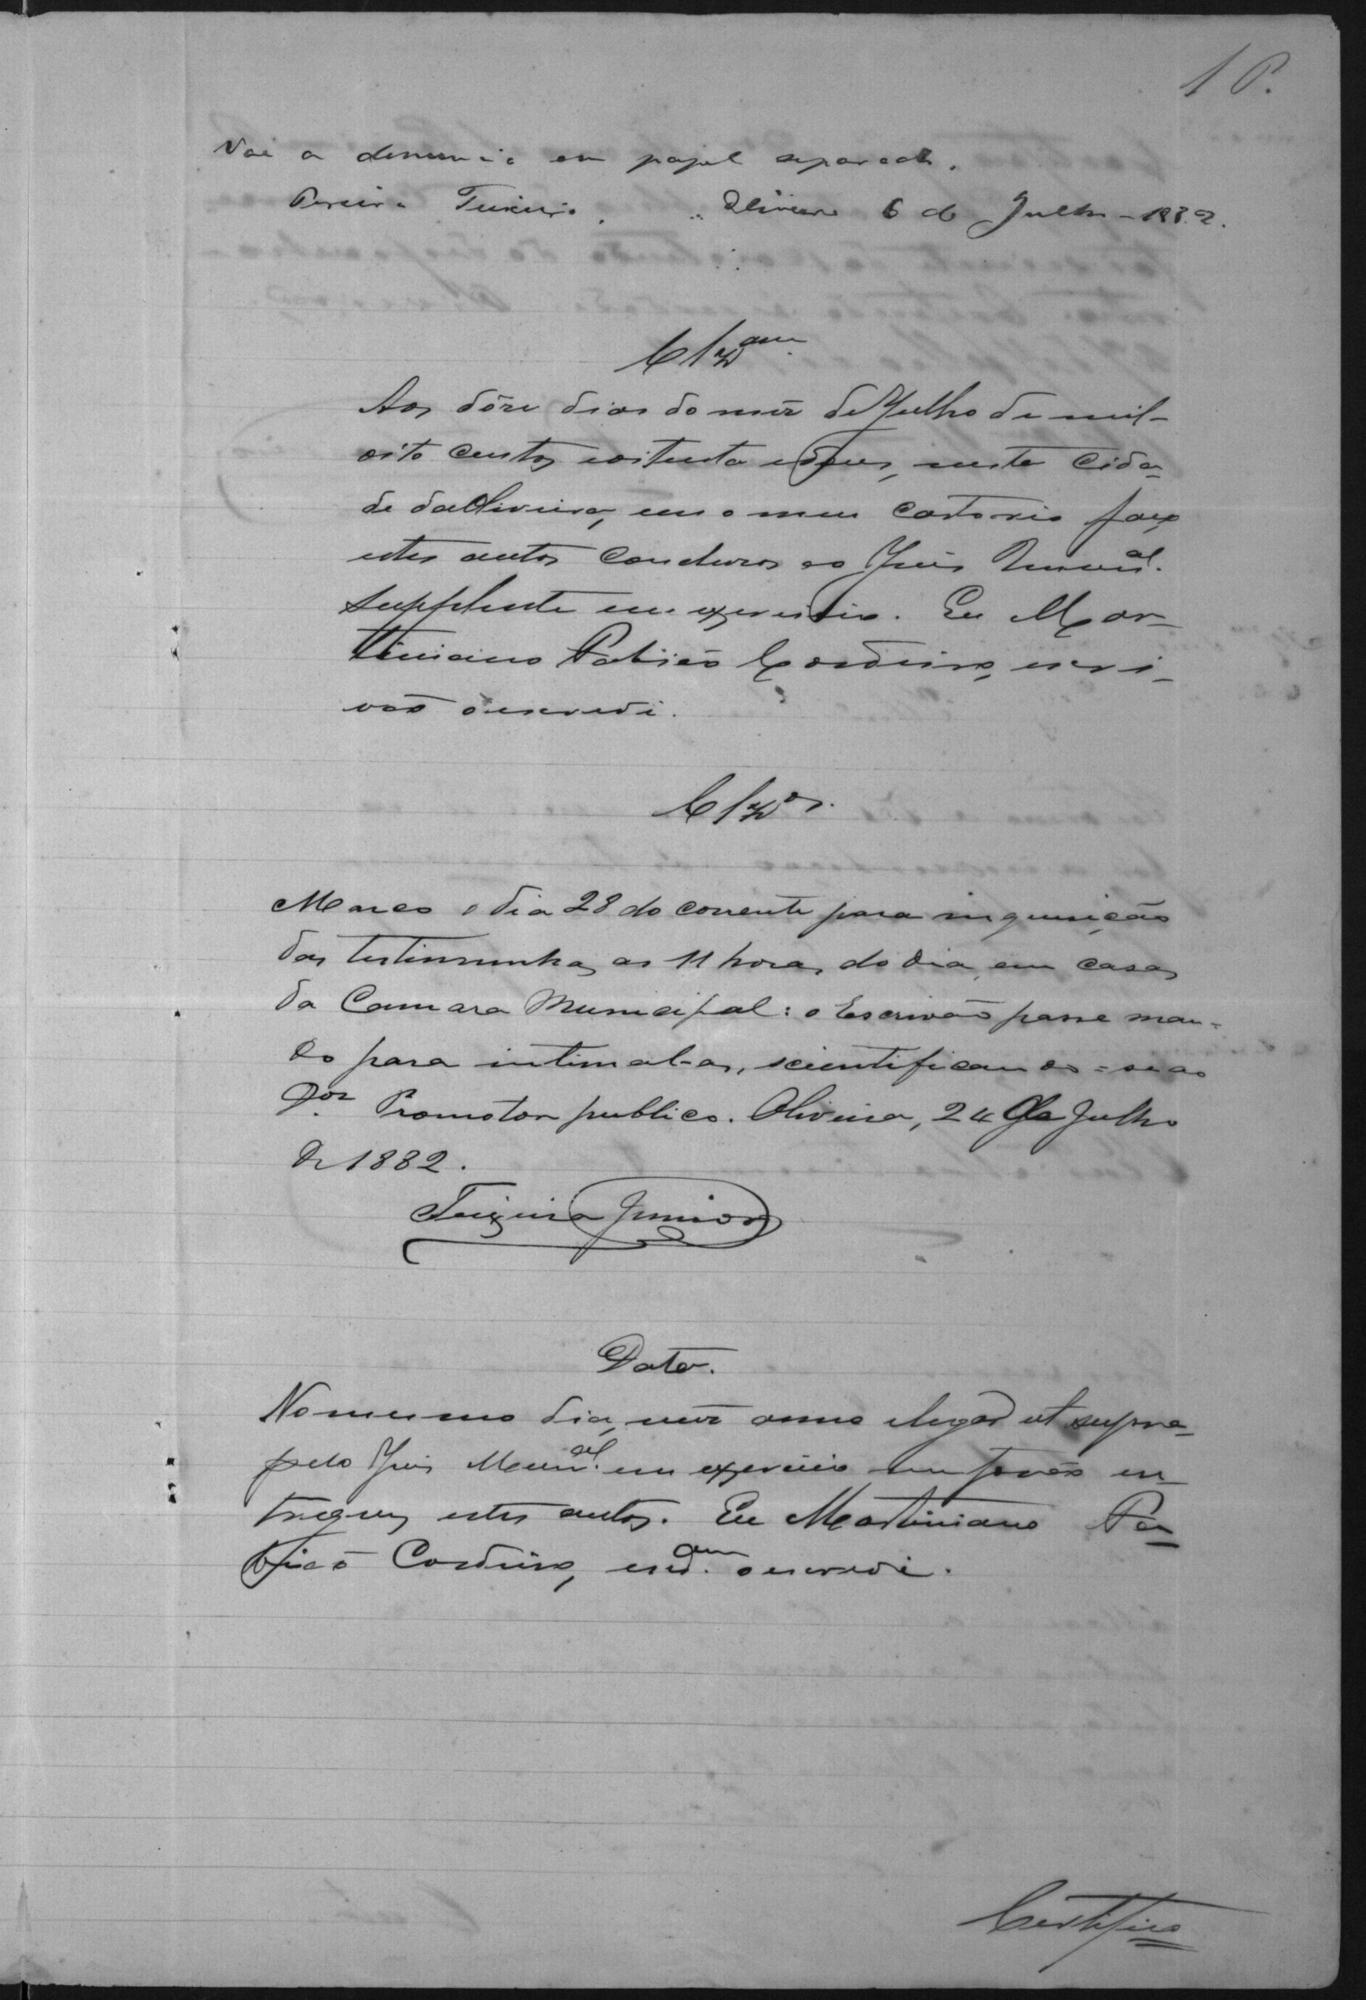 Vai a denuncia em papel separado.
Pereira Teixeira. Oliveira 6 de Julho 1882.
Clzam
Aos dôze dias do mêz de Julho de mil
oito centos eoitenta edous, nesta Cida-
de daOliveira, em o meu Cartorio faço
estes autos Concluzos ao Juis Municial.
Supplente em exercicio. Eu Mar-
tiniano Patricio Cordeiro, escri-
vão oescrevi.
Clzos.
Marco o dia 28 do corrente para inquirição
das testimunhas, as 11 horas do dia, em casas
da Camara Municipal: o Escrivão passe man-
do para intimal-as, scientificando-se ao
Dor. Promotor publico. Oliveira, 24 de Julho
de 1882.
Teixeira Junior
Data.
Nomesmo dia, mêz anno elugar ut supra-
pelo Juis Munal. em exercicio me forão en-
tregues estes autos. Eu Martiniano Pa-
tricio Cordeiro, escram. oescrevi.
Certifico